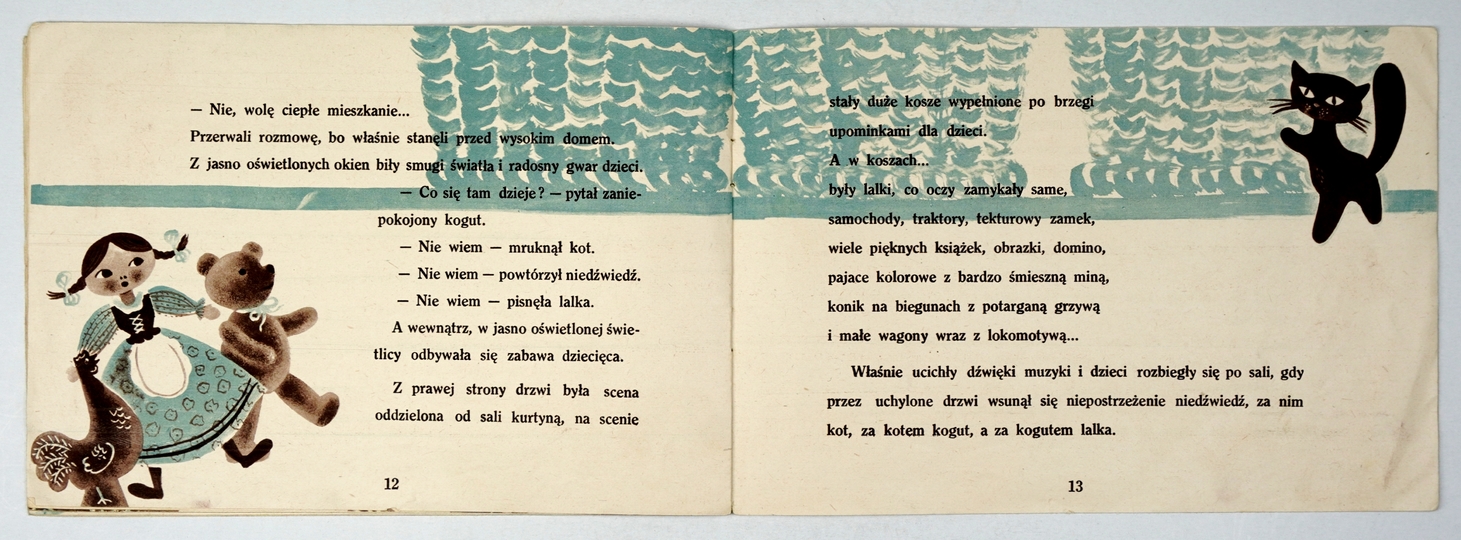 — Nie, wolę ciepłe mieszkanie...
Przerwali rozmowę, bo właśnie stanęli przed wysokim domem.
Z jasno oświetlonych okien biły smugi światła i radosny gwar dzieci.
— Co się tam dzieje? — pytał zanie-
pokojony kogut.
— Nie wiem — mruknął kot.
— Nie wiem — powtórzył niedźwiedź.
— Nie wiem — pisnęła lalka.
A wewnątrz, w jasno oświetlonej świe-
tlicy odbywała się zabawa dziecięca.
Z prawej strony drzwi była scena
oddzielona od sali kurtyną, na scenie
12
stały duże kosze wypełnione po brzegi
upominkami dla dzieci.
A w koszach...
były lalki, co oczy zamykały same,
samochody, traktory, tekturowy zamek,
wiele pięknych książek, obrazki, domino,
pajace kolorowe z bardzo śmieszną miną,
konik na biegunach z potarganą grzywą
i małe wagony wraz z lokomotywą...
Właśnie ucichły dźwięki muzyki i dzieci rozbiegły się po sali, gdy
przez uchylone drzwi wsunął się niepostrzeżenie niedźwiedź, za nim
kot, za kotem kogut, a za kogutem lalka.
13